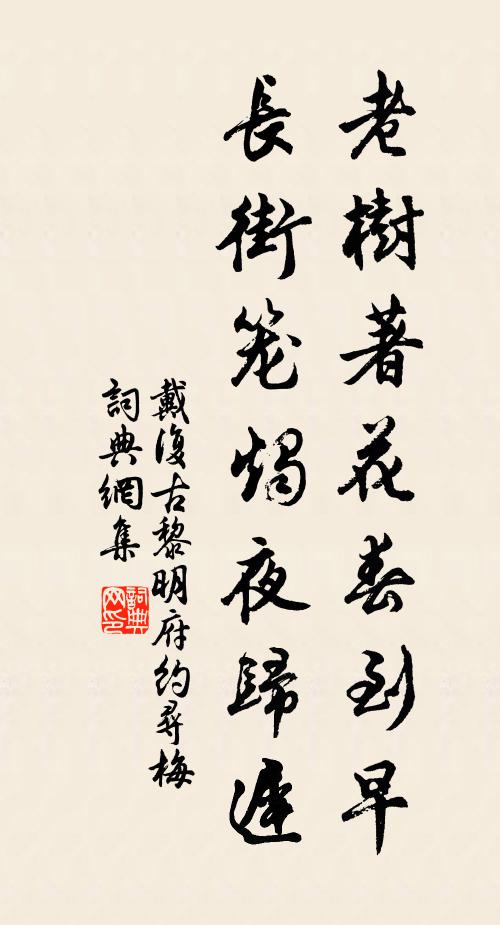 老樹著花春到早
長街笼燭夜歸遲
戴復古黎明府約尋梅
詞典網集
詞典
网印